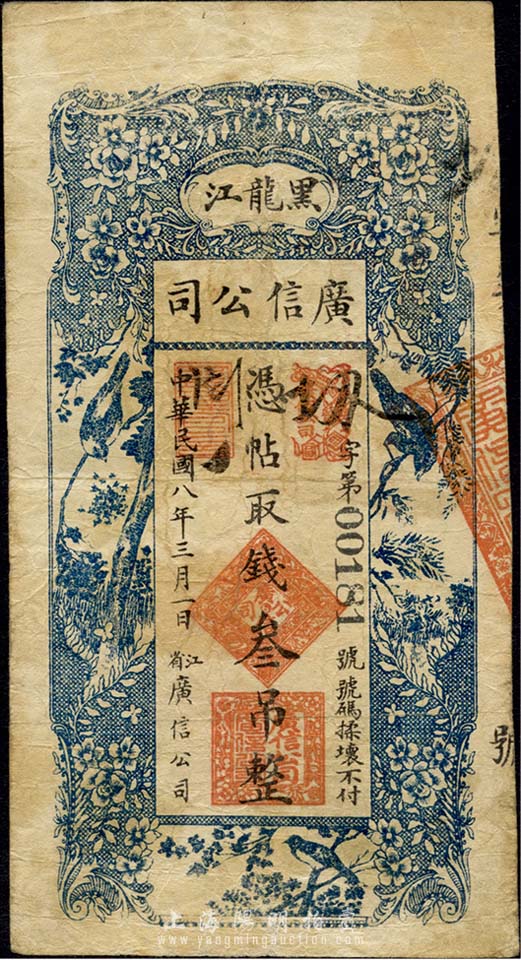 黑龍江
廣信公司
字第00181號 號碼揉壞不付
憑帖取錢叁吊整
中華民國八年三月一日 江省廣信公司
號
www.yangmingauction.com